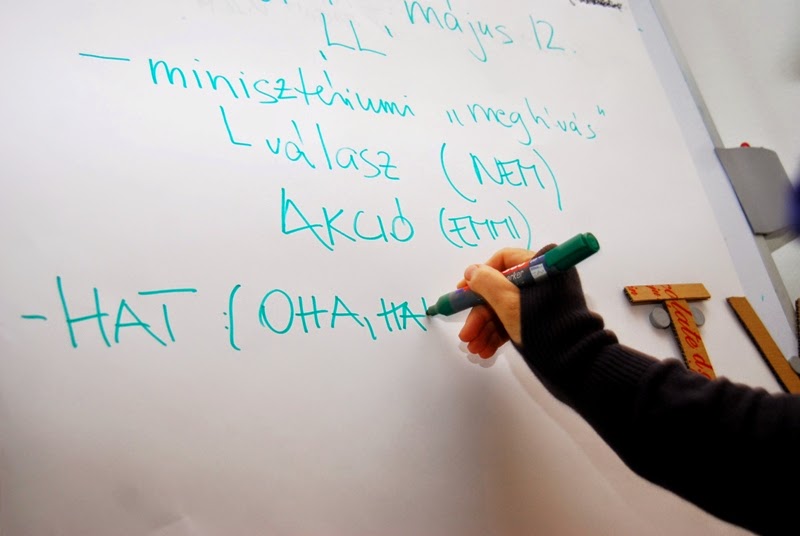 május 12.
LL
– minisztériumi „meghívás"
válasz (NEM)
AKCIÓ (EMMI)
- HAT : ( OHA, HA